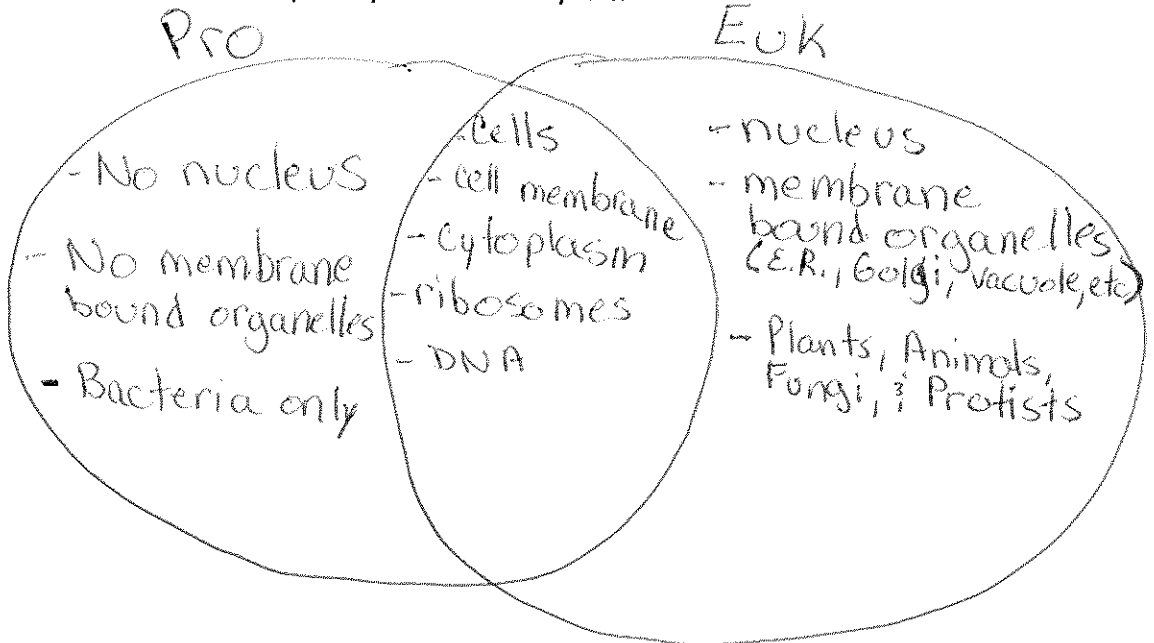 Pro
Euk
- No nucleus
- No membrane
bound organelles
- Bacteria only
- Cells
- Cell membrane
- Cytoplasm
- ribosomes
- DNA
- nucleus
- membrane
bound organelles
(E.R., Golgi, vacuole, etc)
- Plants, Animals,
Fungi, & Protists